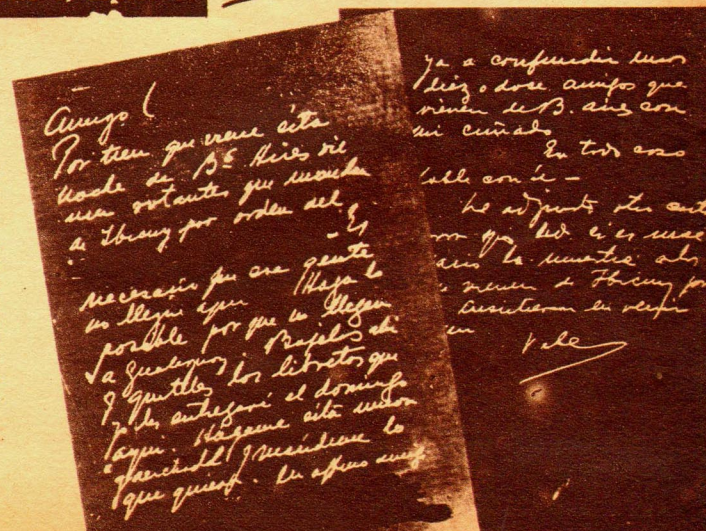 Amigo
Por tren que viene esta
noche de Bs Aires vie
nen votantes que mandan
de Ibicuy por orden del
- Es
necesario que esa gente
no llegue aquí Haga lo
posible por que no lleguen
a Gualeguay. Bájelos ahí
y quíteles los libretos que
yo les entregaré el domingo
aquí. Hágame esta
gauchada y mándeme lo
que quiera. Su affmo amigo
ya a confundir unos
diez o doce amigos que
vienen de B. aires con
mi cuñado
En todo caso
hable con
Le adjunto otra
Ud. si es nece
la muestre a los
vienen de Ibicuy
insistieran en venir
Vale